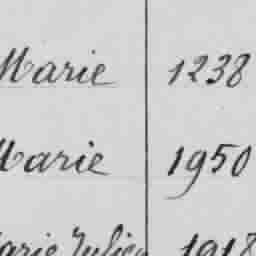 Marie 1238
Marie 1950
Marie Julien 1918